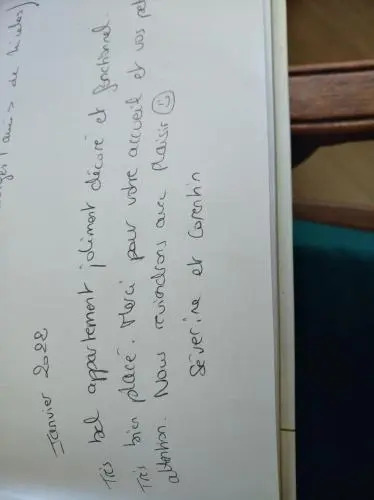 amis de Nicolas)
Janvier 2022
Très bel appartement joliment décoré et fonctionnel.
Très bien placé. Merci pour votre accueil et vos pet
attention. Nous reviendrons avec plaisir ☺
Séverine et Corentin